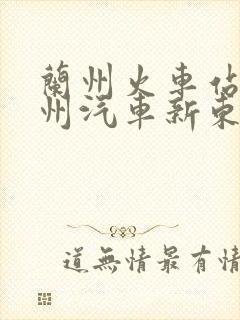 蘭州火車
州汽車新東
道無情最有情